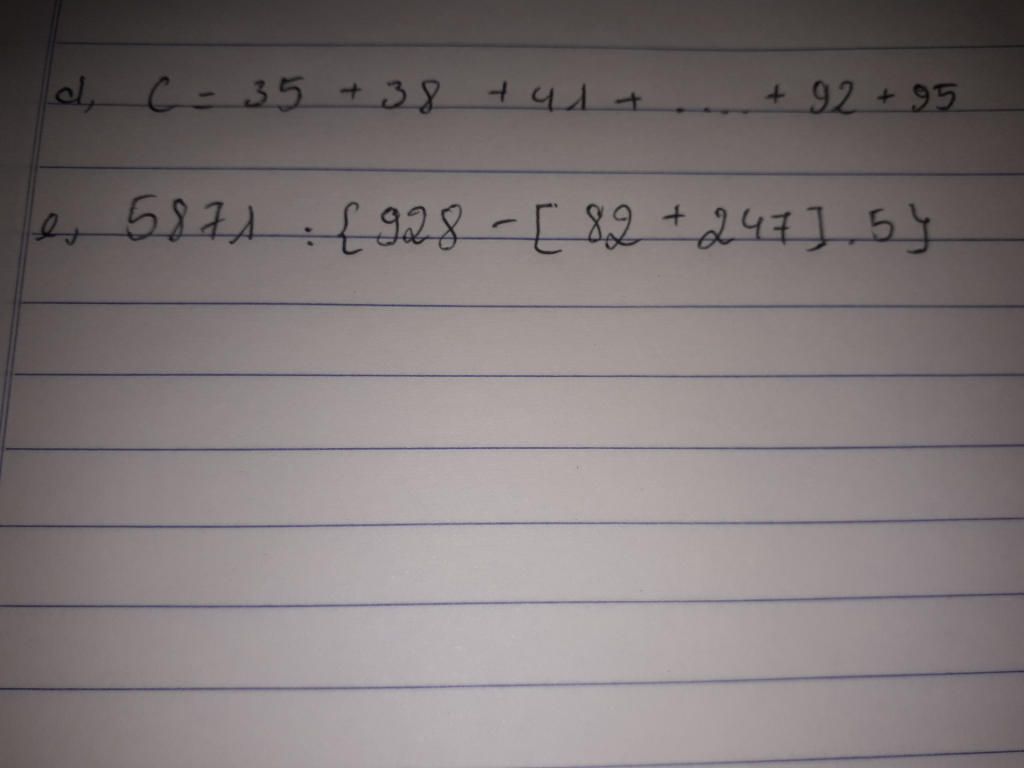 d, C = 35 + 38 + 41 + .... + 92 + 95
e, 5871 : {928 - [ 82 + 247 ] . 5}